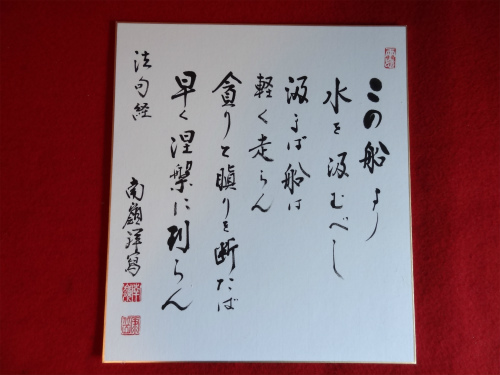 この船より
水を汲むべし
汲まば船は
軽く走らん
貪りと瞋りを断たば
早く涅槃に到らん
法句経
南嶺謹写